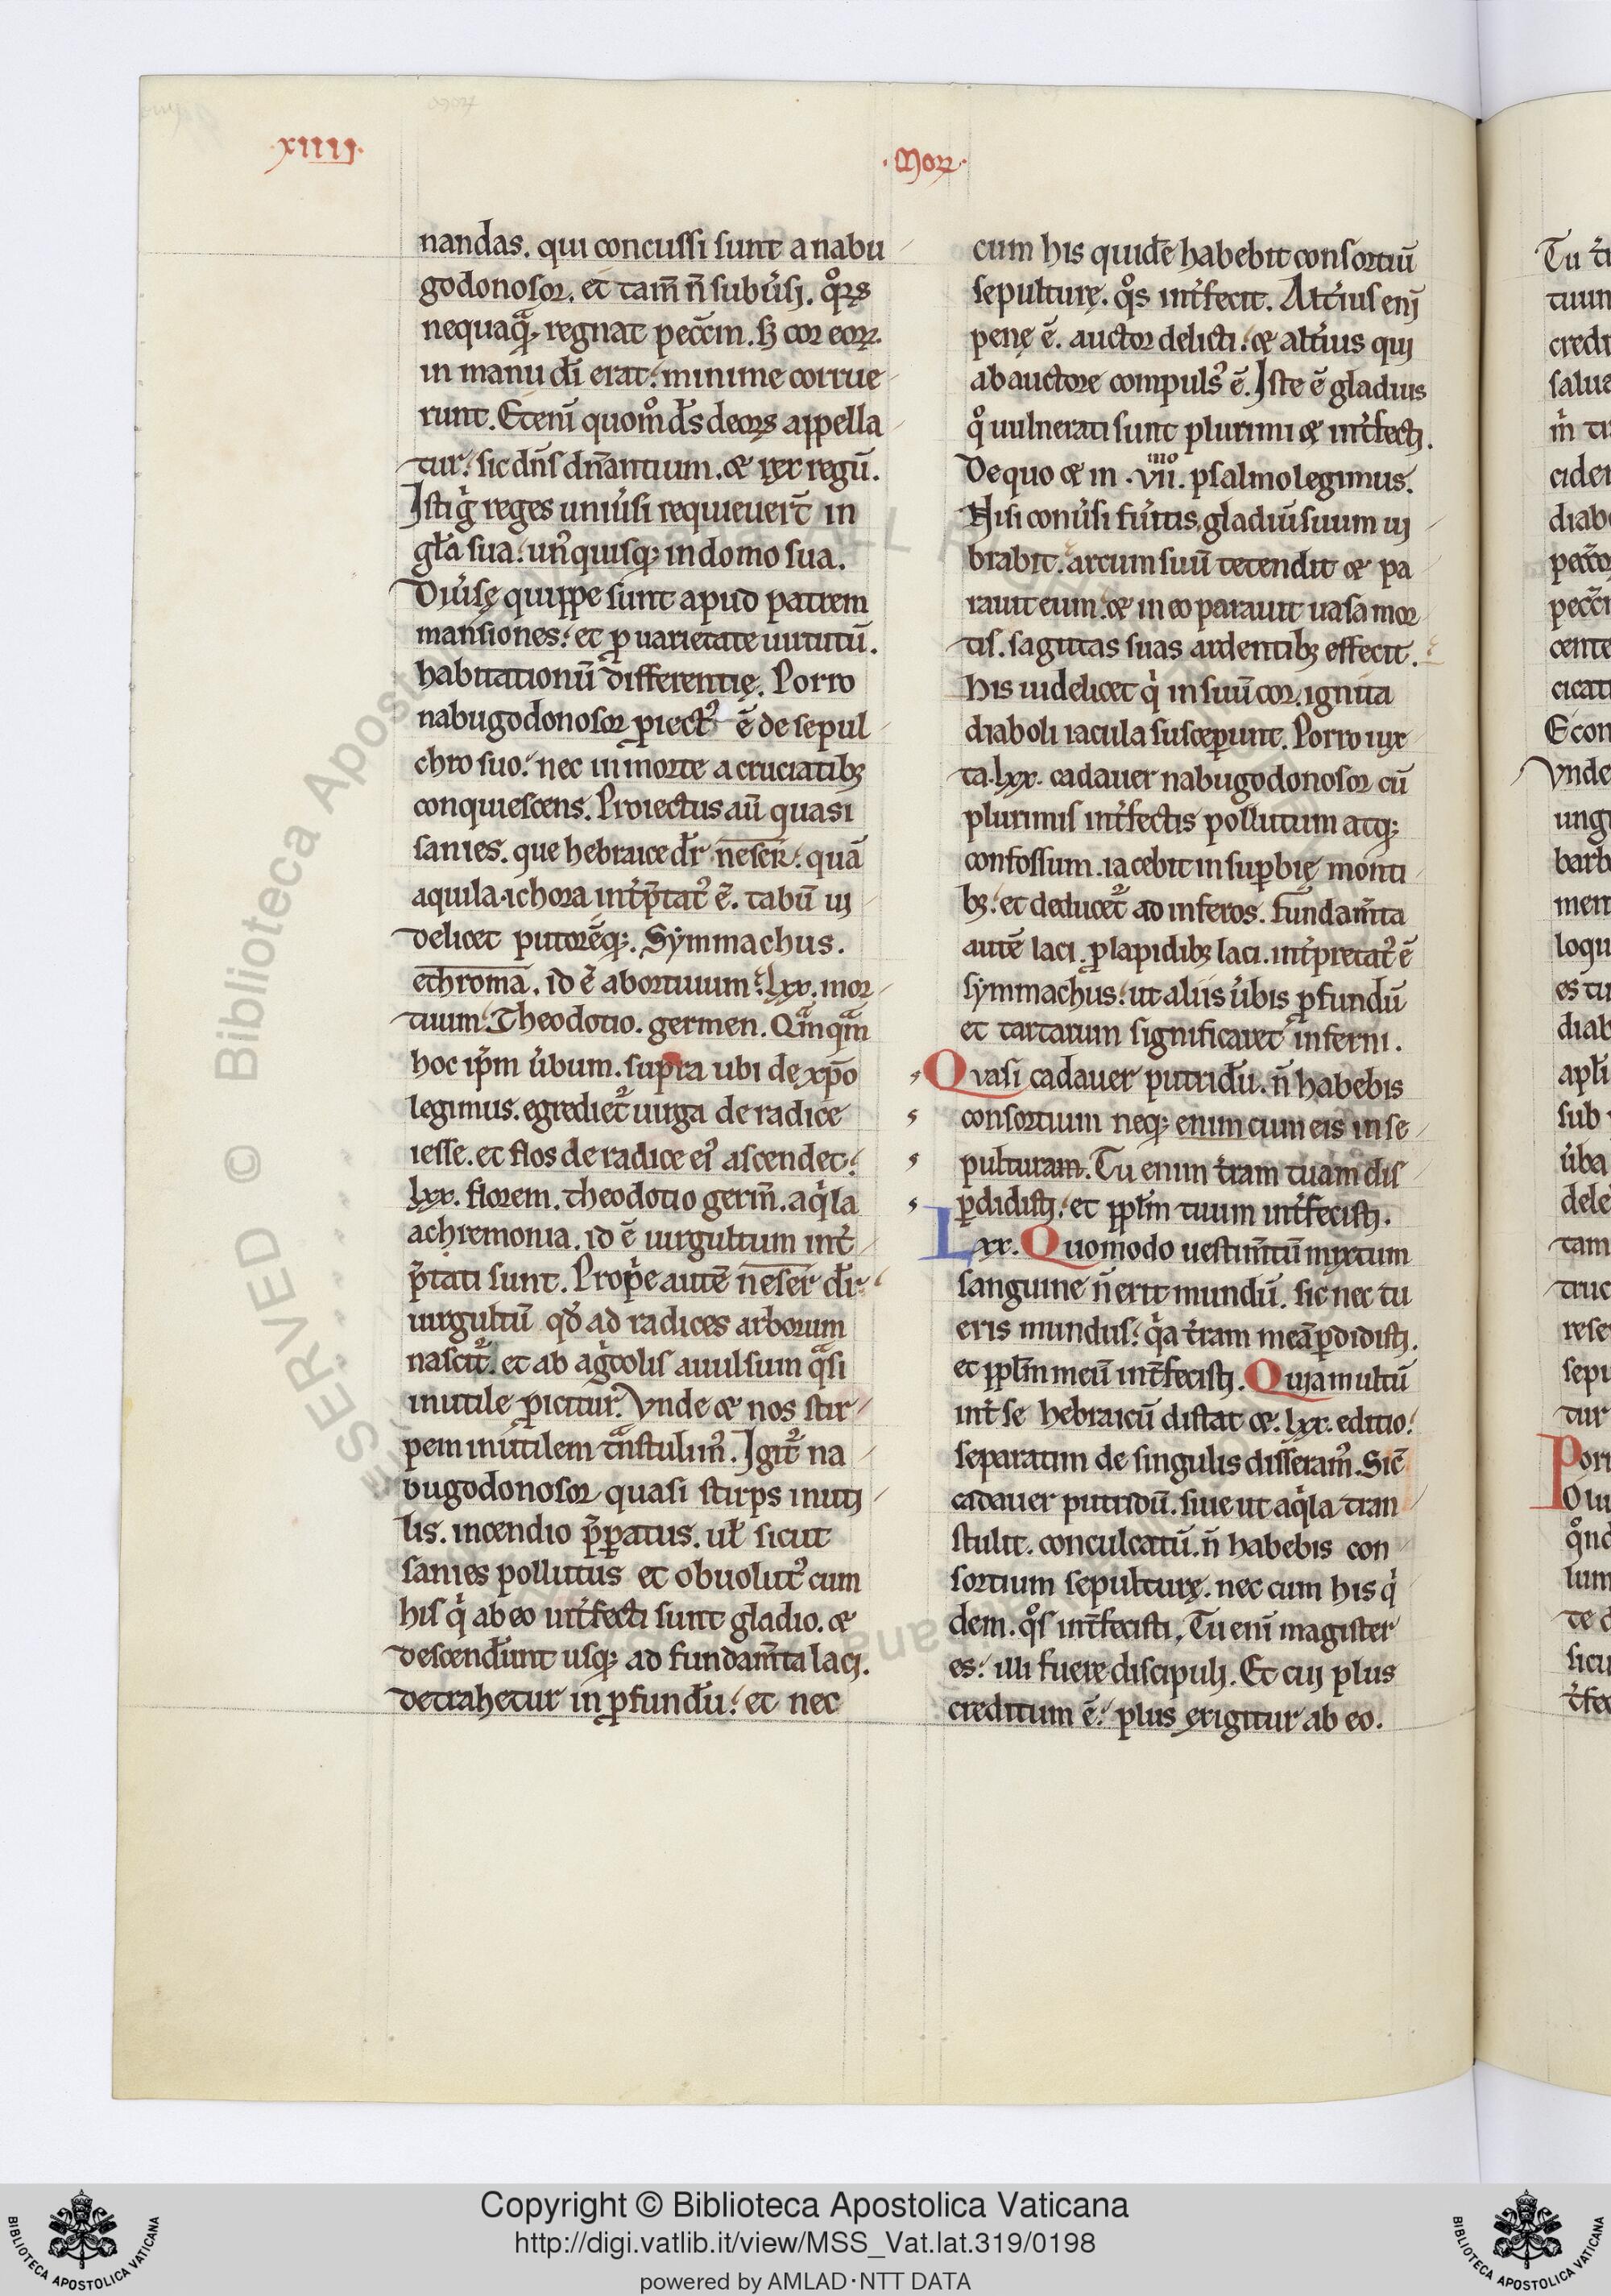 ·xıııȷ·
·Moꝝ·
nandas. qui concussi sunt a nabu
godonosor. et tam̄ n̄ subu̓sı. qͦꝝ
nequaqᷓ regnat pecc̄m. sꝫ cor eoꝝ.
in manu di̅ erat: minime corrue
runt. Eteni̅ quom̊ d̅s deorꝝ appella
tur: sic dn̅s dn̅antium. ⁊ rex regū.
Isti gͥ reges uniu̓si requieuer̅t in
gl̅a sua: unꝰquisqꝫ in domo sua.
Diu̓sę quippe sunt apud patrem
mansiones: et ꝓ uarietate uirtutū.
habitationū differentię. Porro
nabugodonosor ꝓiectꝰ ē de sepul
chro suo: nec in morte a cruciatibꝫ
conquiescens. Proiectus aū quasi
sanies. que hebraice dr̅ neser: quā
aquila ichora int̓p̅tatꝰ ē. tabū ui
delicet putorēqꝫ. Symmachus.
ethroma. id ē abortiuum: lxx. mor
tuum: Theodotio. germen. Qᷓmqᷓm
hoc ip̅m u̓bum. supra ubi de xp̅o
legimus. egrediet᷑ uirga de radice
iesse. et flos de radice eiꝰ ascendet:
lxx. florem. theodotio germ̅. aqͥla
achremonia. id ē uirgultum int̓
p̅tati sunt. Propͥe autē neser dr̅:
uirgultū qd̓ ad radices arborum
nascit᷑. et ab agͥcolis auulsum qᷓsi
inutile ꝓicitur. Vnde ⁊ nos stir
pem inutilem tᷓnstulimꝰ. Igit᷑ na
bugodonosor quasi stirps inuti
lis. incendio p̅ꝑatus. ul̅ sicut
sanies pollutus et obuolutꝰ cum
his qͥ ab eo int̓fecti sunt gladio. ⁊
descendūnt usqꝫ ad fundam̅ta laci.
detrahetur in ꝓfundū: et nec
cum his quidē habebit consortiū
sepulturę. qͦs int̓fecit. Alt̓ius eni̅
penę ē. auctor delicti: ⁊ alt̓ius qui
ab auctore compulsꝰ ē. Iste ē gladius
qͦ uulnerati sunt plurimi ⁊ int̓fecti.
De quo ⁊ in .vii.mo psalmo legimus.
Nisi conu̓si fu̓itis gladiū suum ui
brabit: arcum suū tetendit ⁊ pa
rauit eum: ⁊ in eo parauit uasa mor
tis. sagittas suas ardentibꝫ effecit.
his uidelicet qͥ in suū cor. ignita
diaboli iacula susceꝑunt. Porro iux
ta .lxx. cadauer nabugodonosor cū
plurimis int̓fectis pollutum atqꝫ
confossum. iacebit in suꝑbię monti
bꝫ: et deducet᷑ ad inferos. fundam̅ta
autē laci. ꝓ lapidibꝫ laci. int̓pretatꝰ ē
symmachus: ut aliis u̓bis ꝓfundū
et tartarum significaret inferni.
Quasi cadauer putridū. n̄ habebis
consortium neqꝫ enim cum eis in se
pulturam. Tu enim t̓ram tuam dis
ꝑdidisti: et ppl̅m tuum int̓fecisti.
Lxx. Quomodo uestim̅tū mixtum
sanguine n̄ erit mundū. sic nec tu
eris mundus: qͥa t̓ram meā ꝑdidisti.
et ppl̅m meū int̓fecisti. Quia multū
int̓ se hebraicū distat ⁊ .lxx. editio:
separatim de singulis disseramꝰ. Sic̅
cadauer putridū. siue ut aqͥla tran
stulit. conculcatū. n̄ habebis con
sortium sepulturę. nec cum his qͥ
dem. qͦs int̓fecisti. Tu eni̅ magister
es: illi fuere discipuli. Et cui plus
creditum ē: plus exigitur ab eo.
Copyright © Biblioteca Apostolica Vaticana
http://digi.vatlib.it/view/MSS_Vat.lat.319/0198
powered by AMLAD·NTT DATA